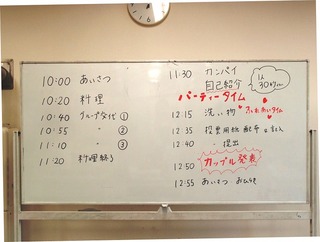 10:00 あいさつ
10:20 料理
10:40 グループ交代 ①
10:55 〃 ②
11:10 〃 ③
11:20 料理終了
11:30 カンパイ
自己紹介
1人
30秒
パーティータイム
12:15 洗い物
ふれあいタイム
12:35 投票用紙 配布
12:40 〃 提出
12:50 カップル発表
12:55 あいさつ おひらき